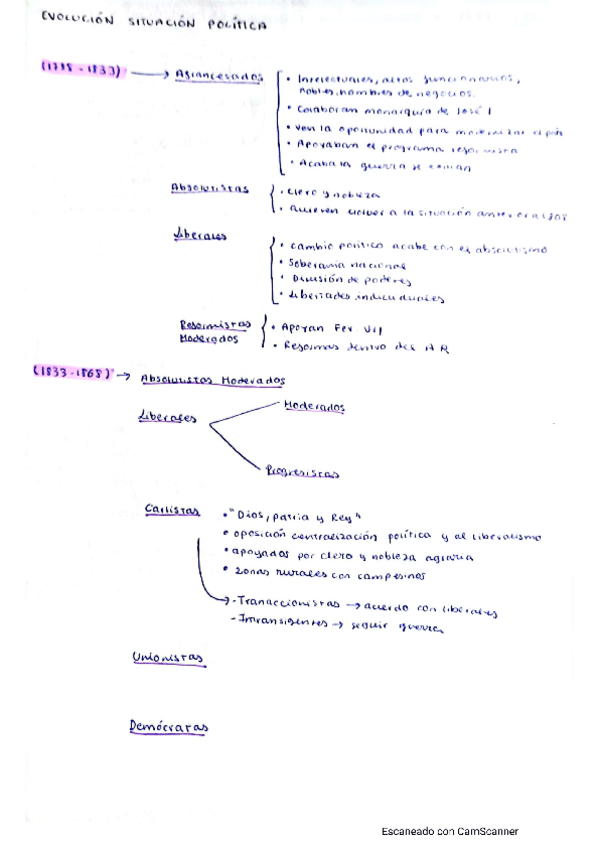 EVOLUCIÓN SITUACIÓN POLÍTICA
(1788-1833) → Afrancesados
• Intelectuales, altos funcionarios,
nobles, hombres de negocios.
• Colaboran monarquía de José I
• Ven la oportunidad para modernizar el país
• Apoyaban el programa reformista
• Acaba la guerra se exilian
Absolutistas
• Clero y nobleza
• Quieren volver a la situación anterior a 1808
Liberales
• Cambio político acabe con el absolutismo
• Soberanía nacional
• División de poderes
• Libertades individuales
Reformistas
Moderados
• Apoyan Fer VII
• Reformas dentro del AR
(1833-1868) → Absolutistas Moderados
Liberales
Moderados
Progresistas
Carlistas
• "Dios, patria y Rey"
• oposición centralización política y al liberalismo
• apoyados por clero y nobleza agraria
• zonas rurales con campesinos
- Tranaccionistas → acuerdo con liberales
- Intransigentes → seguir guerra
Unionistas
Demócratas
Escaneado con CamScanner